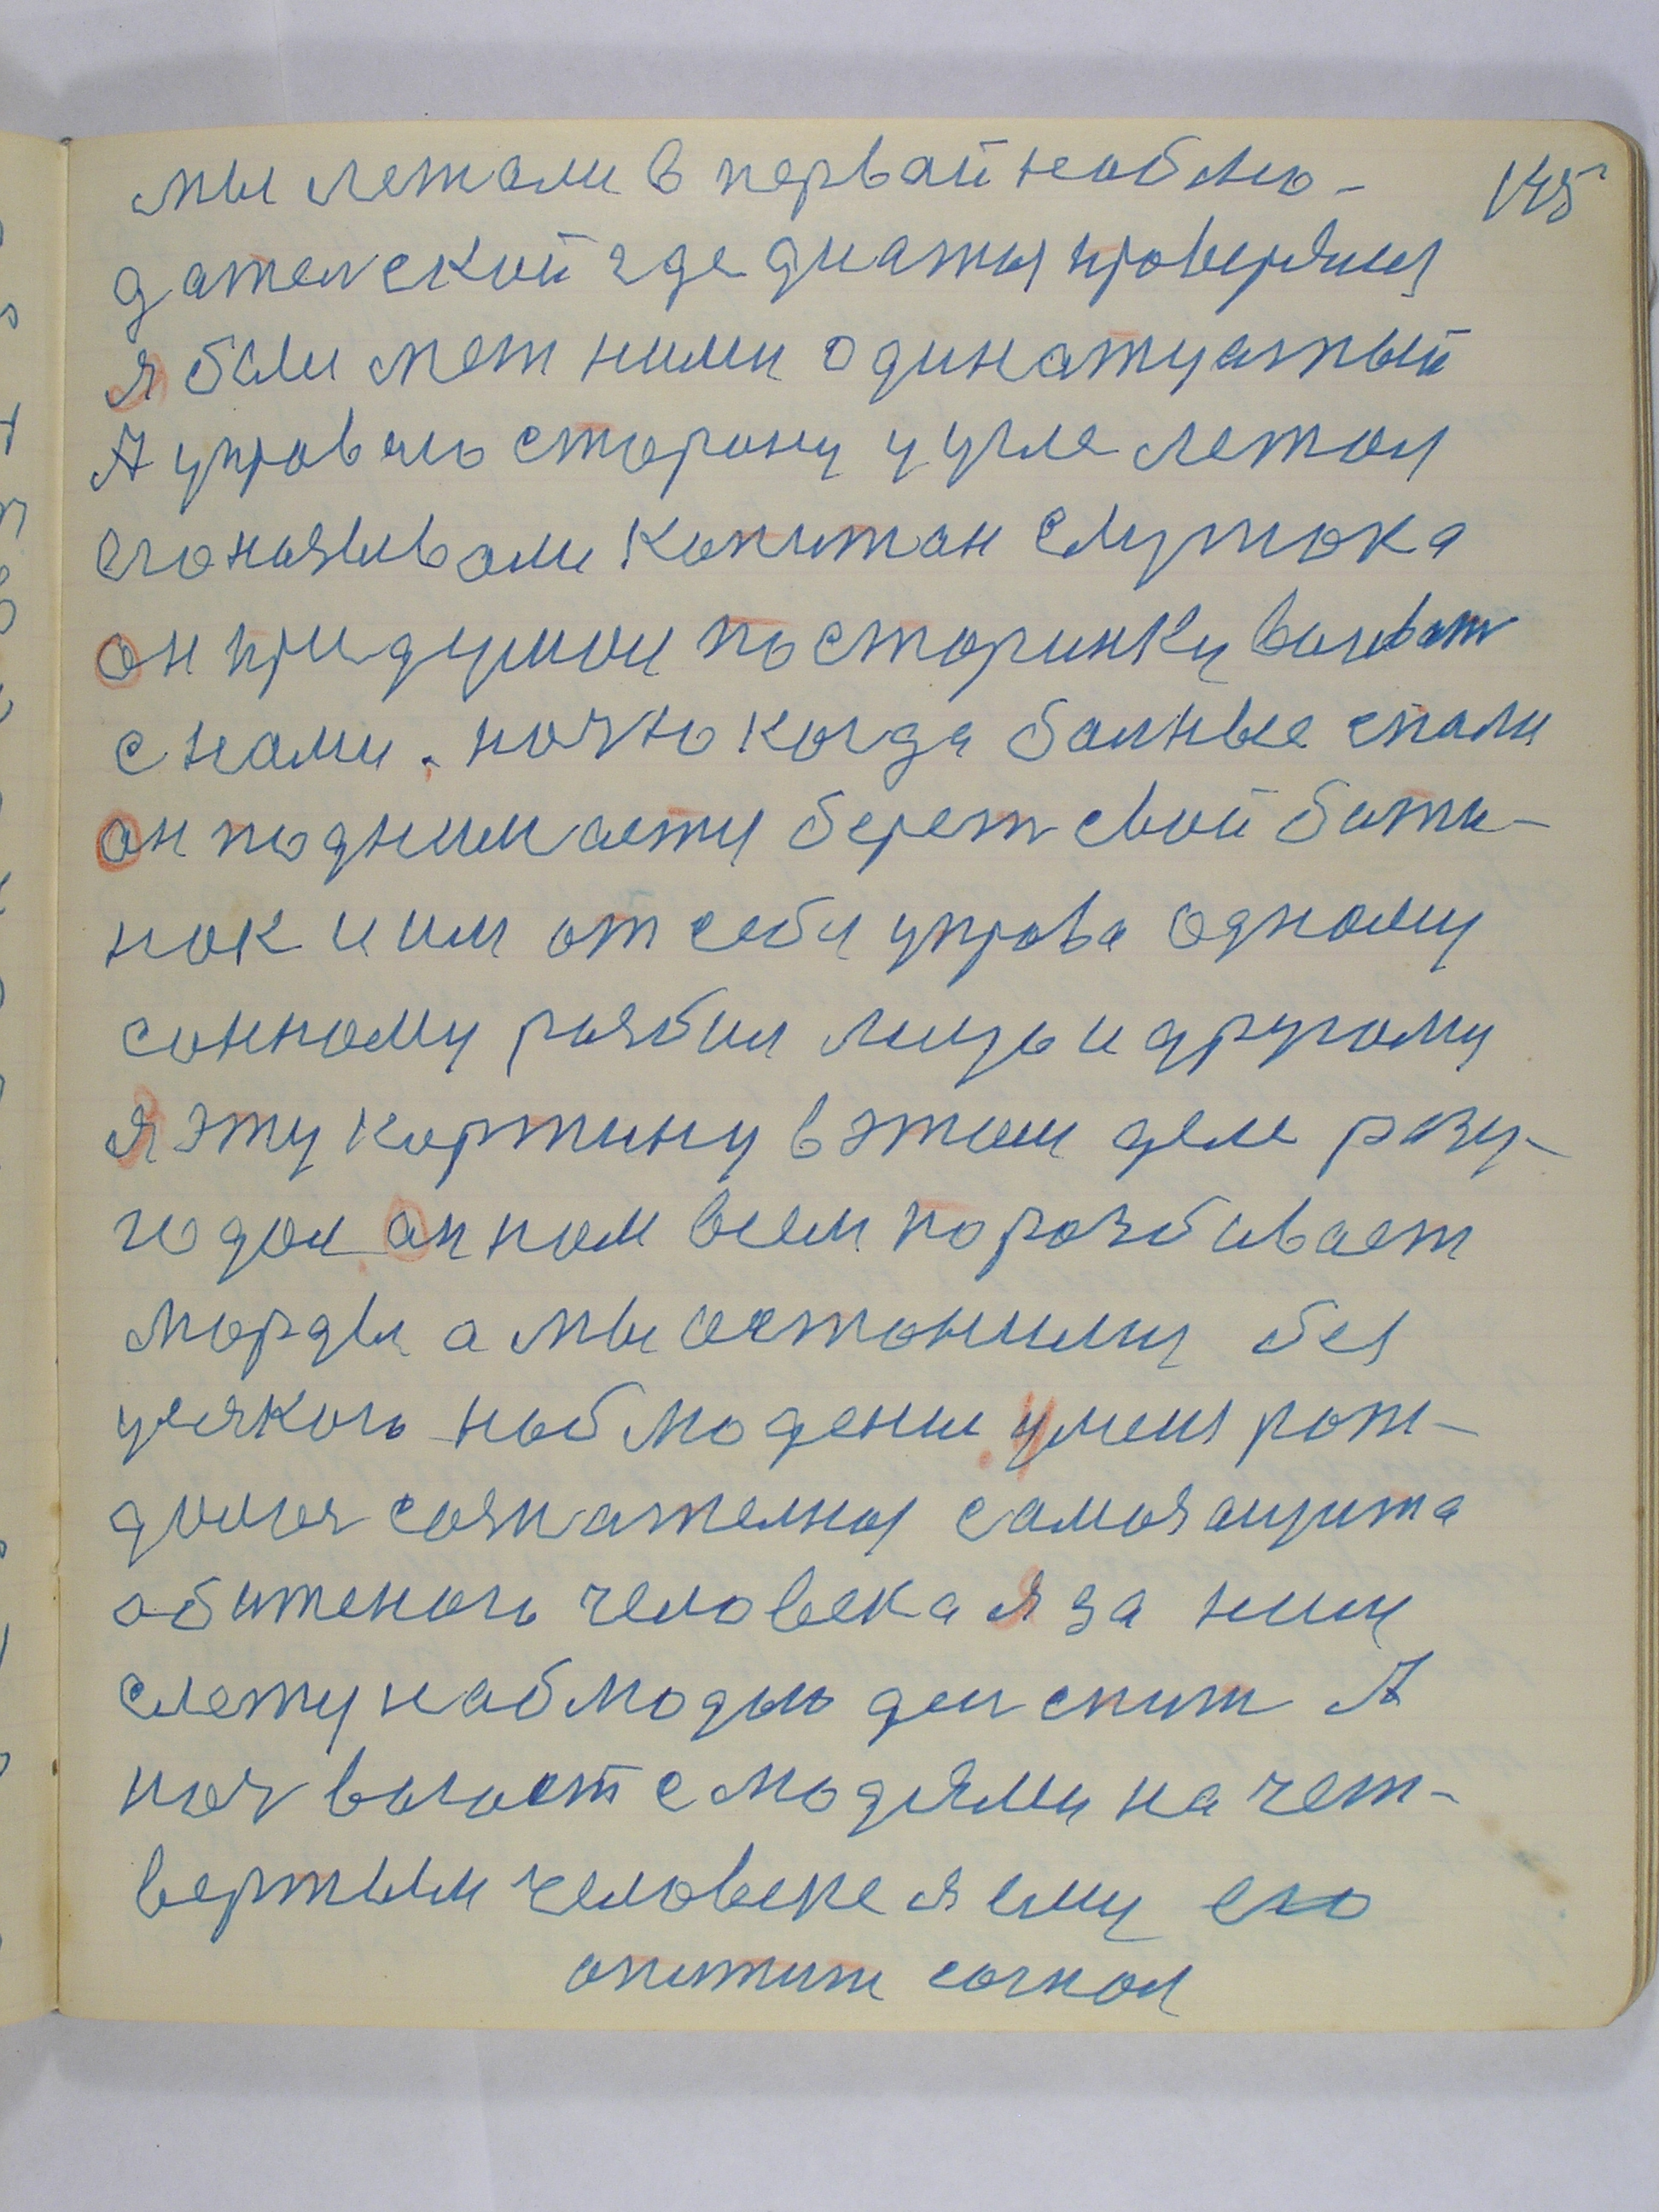 мы лежали в первай наблю- 145
дателской где диаты проверялися
я были меж ними одинатцатый
А управую сторону у угле лежал
его називали капитан Слутока
он придумал по сторинку виюват
с нами. ночю когда балные спали
он поднимаетц берет свой боти-
нок и им от себя управа одному
сонному разбил лицо и другому
я эту картину в этом деле розу-
годал он нам всем поразбивает
морды а мы астанимц без
усякого наблюдение умена рож-
дилася сознателная самозащита
абиженого человека я за ним
слежу наблюдаю ден спит А
ноч воюет с людями на чет-
вертым человеке я ему его
апитит согнал